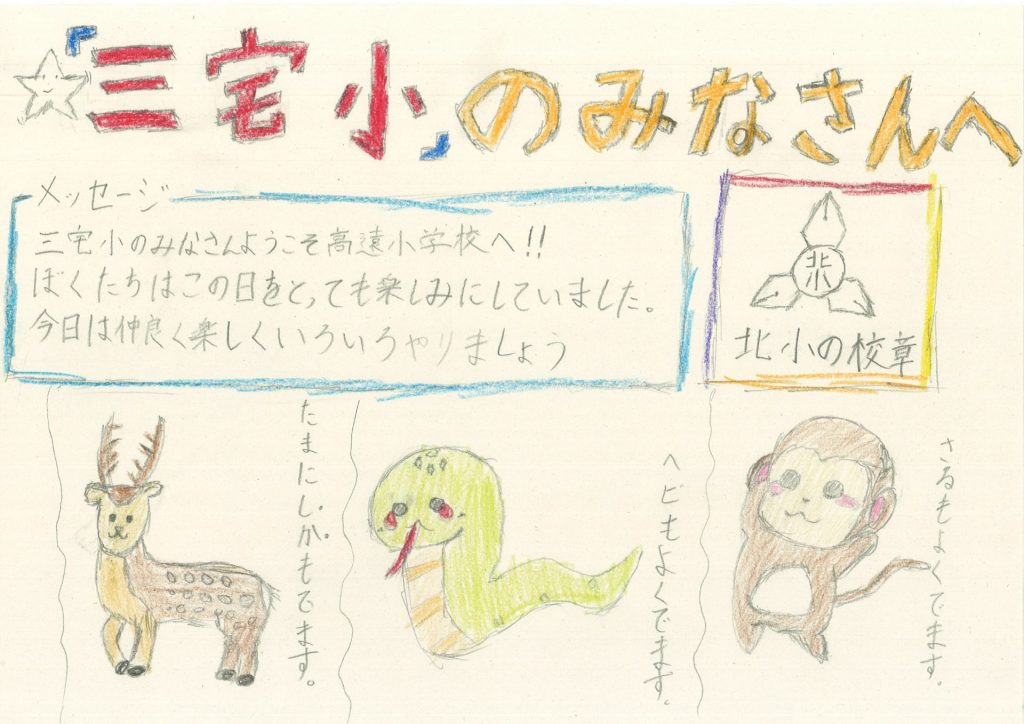 「三宅小」のみなさんへ
メッセージ
三宅小のみなさんようこそ高遠小学校へ!!
ぼくたちはこの日をとっても楽しみにしていました。
今日は仲良く楽しくいろいろやりましょう
北
北小の校章
たまにしかもでます。
ヘビもよくでます。
さるもよくでます。